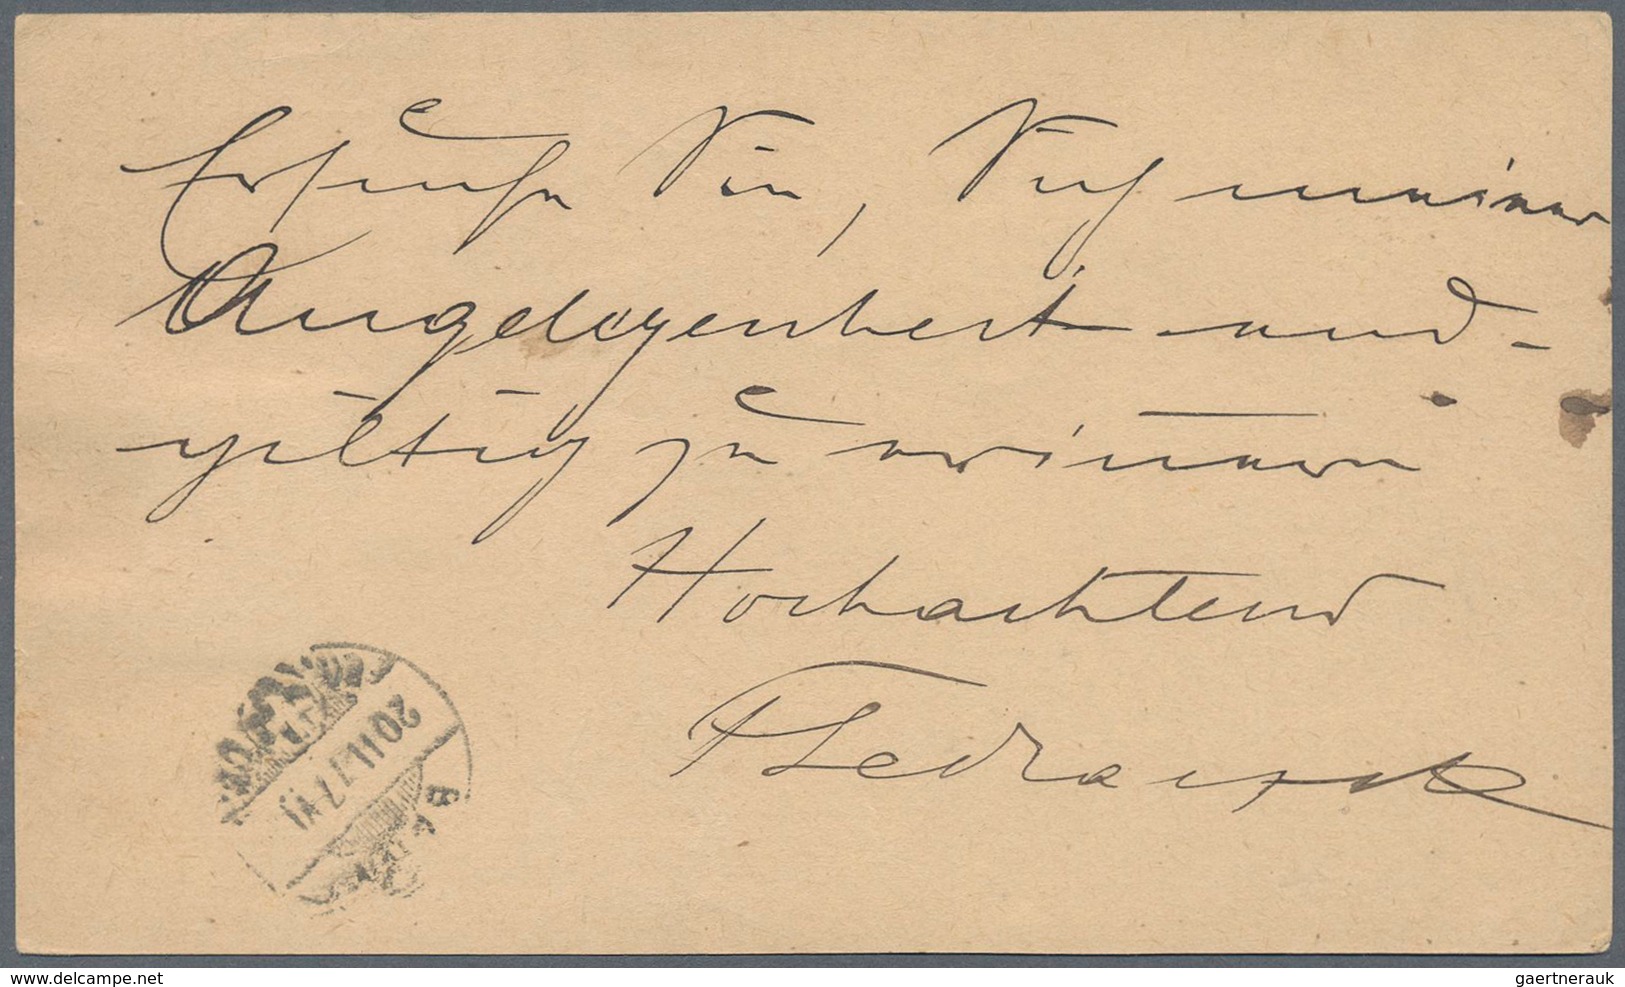 Ersuche Sie, Sich meiner
Angelegenheit end-
giltig zu erinnern
Hochachtend
20 II 17 7 V
www.delcampe.net
gaertnerauk